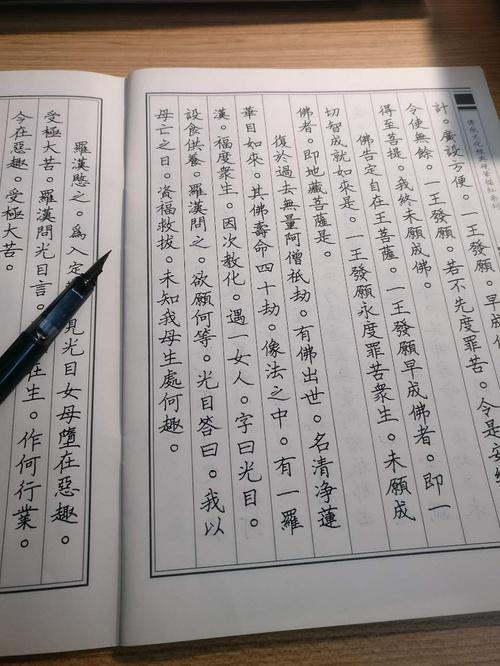 計。廣設方便。一王發願。早成
令使無餘。一王發願。若不先度罪苦。令是安
得至菩提。我終未願成佛。
佛告定自在王菩薩。一王發願早成佛者。即一
切智成就如來是。一王發願永度罪苦眾生。未願成
佛者。即地藏菩薩是。
復於過去無量阿僧祇劫。有佛出世。名清淨蓮
華目如來。其佛壽命四十劫。像法之中。有一羅
漢。福度眾生。因次教化。遇一女人。字曰光目。
設食供養。羅漢問之。欲願何等。光目答曰。我以
母亡之日。資福救拔。未知我母生處何趣。
羅漢愍之。為入定見光目女母墮在惡趣。
受極大苦。羅漢問光目言。在生。作何行業。
今在惡趣。受極大苦。